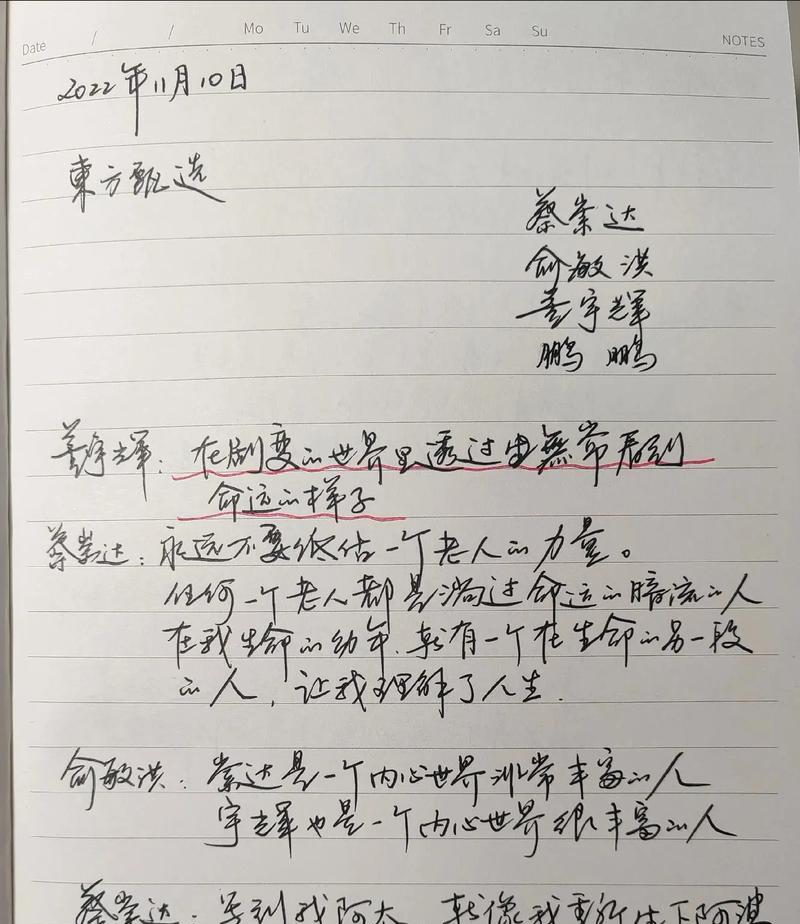 Date / / Mo Tu We Th Fr Sa Su NOTES
2022年11月10日
東方甄选
蔡崇达
俞敏洪
董宇辉
鹏鹏
董宇辉：在剧变的世界里透过生無常看到
命运的样子
蔡崇达：永远不要低估一个老人的力量。
任何一个老人都是淌过命运的暗流的人
在我生命的幼年，就有一个在生命的另一段
的人，让我理解了人生．
俞敏洪：崇达是一个内心世界非常丰富的人
宇辉也是一个内心世界很丰富的人
蔡崇达：写到我阿太，就像我重新生下阿